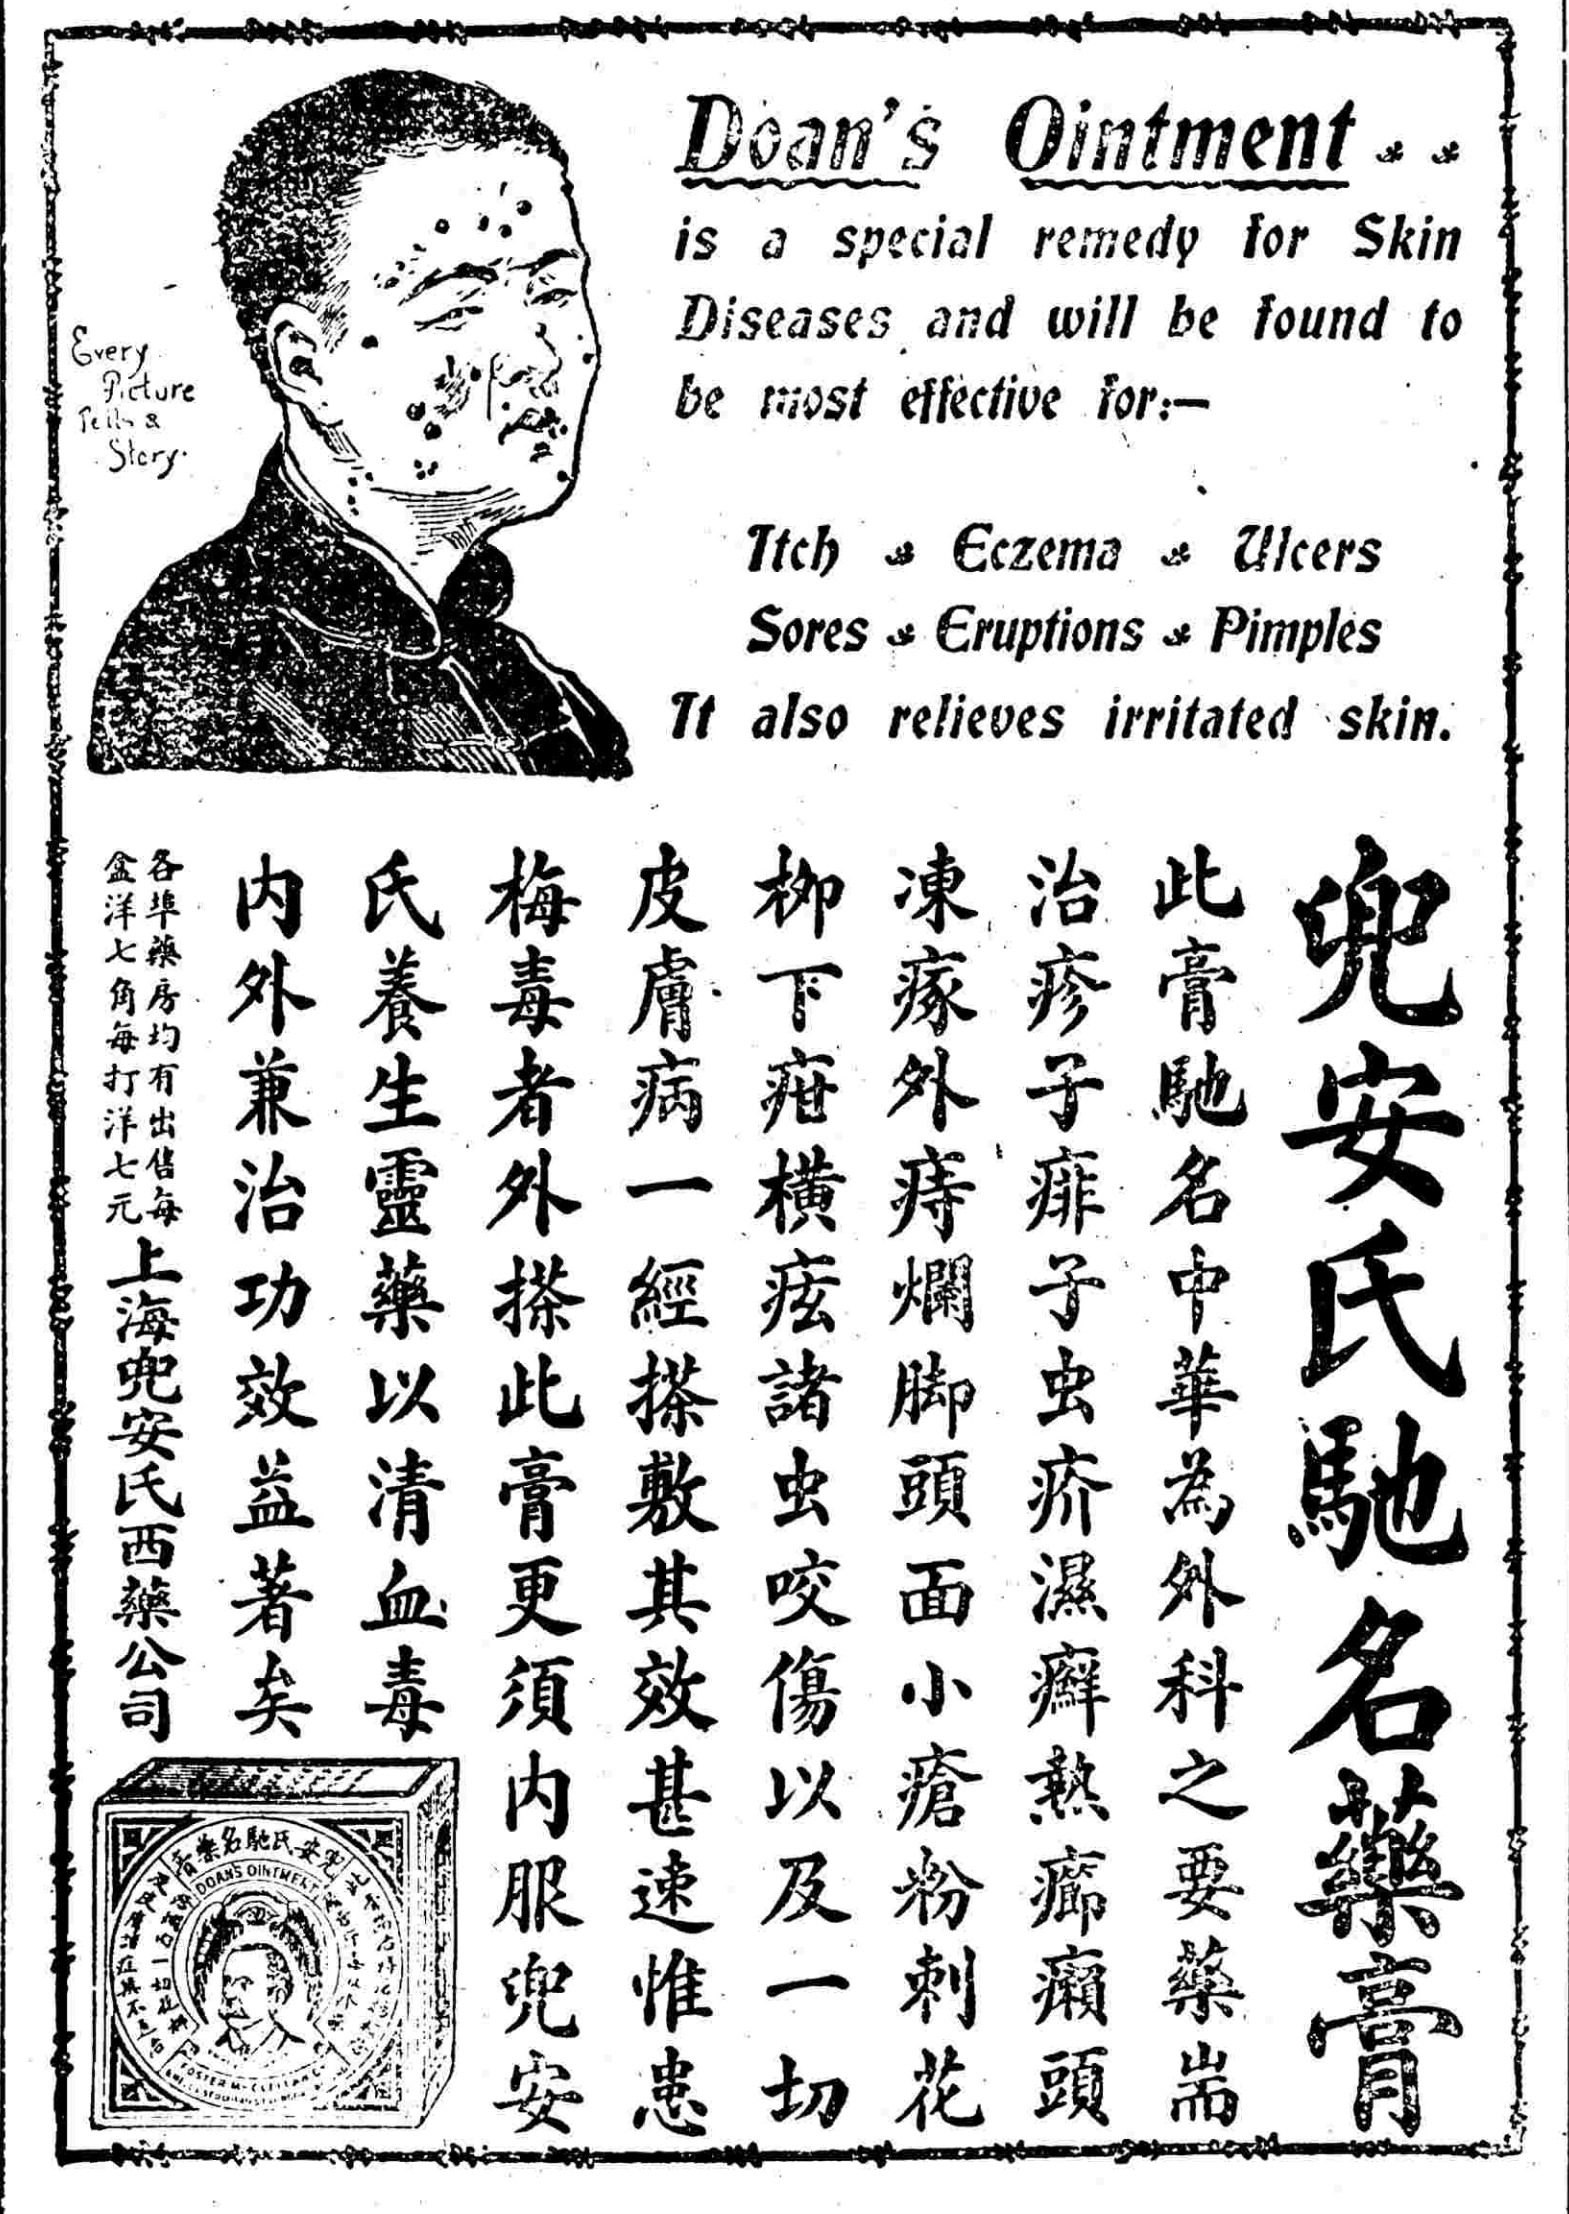 Doan's Ointment
is a special remedy for Skin
Diseases and will be found to
be most effective for:—
Itch Eczema Ulcers
Sores Eruptions Pimples
It also relieves irritated skin.
Every
Picture
Tells a
Story.
兜安氏馳名藥膏
此膏馳名中華為外科之要藥耑
治疹子痱子虫疥濕癬熱癤癩頭
凍瘃外痔爛脚頭面小瘡粉刺花
柳下疳横痃諸虫咬傷以及一切
皮膚病一經搽敷其效甚速惟患
梅毒者外搽此膏更須内服兜安
氏養生靈藥以清血毒
内外兼治功效益著矣
各埠藥房均有出售每
盒洋七角每打洋七元
上海兜安氏西藥公司
兜安氏馳名藥膏
DOAN'S OINTMENT
FOSTER McCLELLAN Co